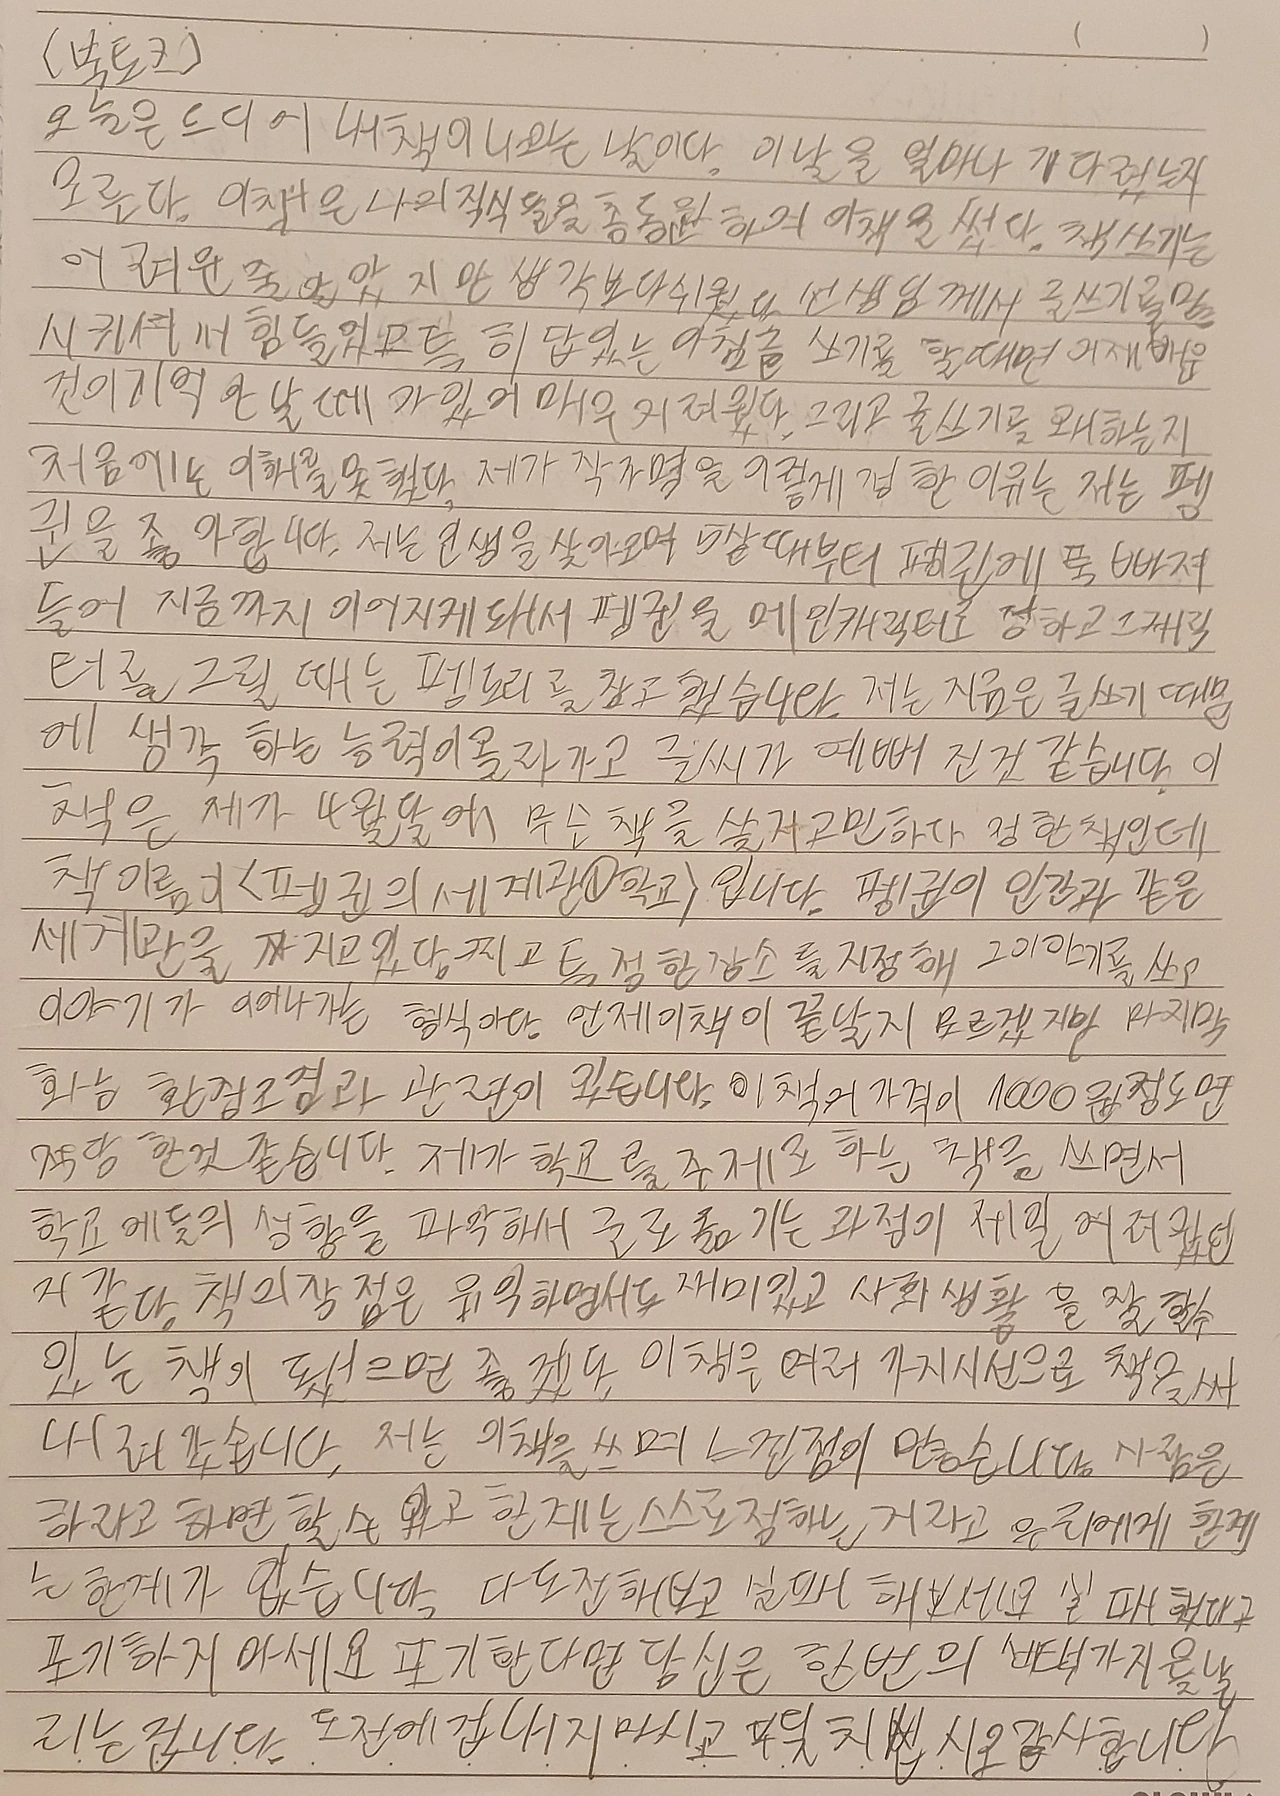 <북토크>
오늘은 드디어 내책이 나오는 날이다. 이날을 얼마나 기다렸는지
모른다. 이책은 나의 지식들을 총동원하여 이책을 썼다. 책쓰기는
어려운 줄 알았지만 생각보다 쉬웠다. 선생님께서 글쓰기를 많
시키셔서 힘들었고 특히 답있는 아침글 쓰기를 할때면 어제배운
것이 기억 안날때가 있어 매우 어려웠다. 그리고 글쓰기를 왜하는지
처음에는 이해를못했다. 제가 작가명을 이렇게 정한 이유는 저는 펭
귄을 좋아합니다. 저는 인생을 살아오며 5살때부터 펭귄에 푹 빠져
들어 지금까지 이어지게돼서 펭귄을 메인캐릭터로 정하고 그캐릭
터를 그릴 때는 펭도리를 참고했습니다. 저는 지금은 글쓰기 때문
에 생각 하는 능력이올라가고 글씨가 예뻐 진것 같습니다. 이
책은 제가 4월달에 무슨책을 쓸지고민하다 정한책인데
책이름이 <펭귄의 세계관①학교>입니다. 펭귄이 인간과 같은
세계관을 가지고있다치고 특정한장소를지정해 그이야기를 쓰고
이야기가 이어나가는 형식이다. 언제이책이 끝날지 모르겠지만 마지막
화는 환점조겸과 관련이 있습니다. 이책의가격이 1000원정도면
적당 한것 같습니다. 제가 학교를주제로 하는 책을 쓰면서
학교에들의 성향을 파악하서 글로옮기는과정이 제일 어려웠던
거 같다. 책의장점은 유익하면서도 재미있고 사회생활을 잘할수
있는 책이 됬으면 좋겠다. 이책은 여러 가지시선으로 책을써
내려갔습니다. 저는 이책을쓰며 느낀점이 많습니다. 사람은
하라고 하면 할수있고 한계는스스로정하는거라고 우리에게 한계
는 한계가 없습니다. 다도전해보고 실패 해보세요 실패했다고
포기하지 마세요 포기한다면 당신은 한번의 선택가지를날
리는겁니다. 도전에겁내지마시고 부딪치십시오감사합니다